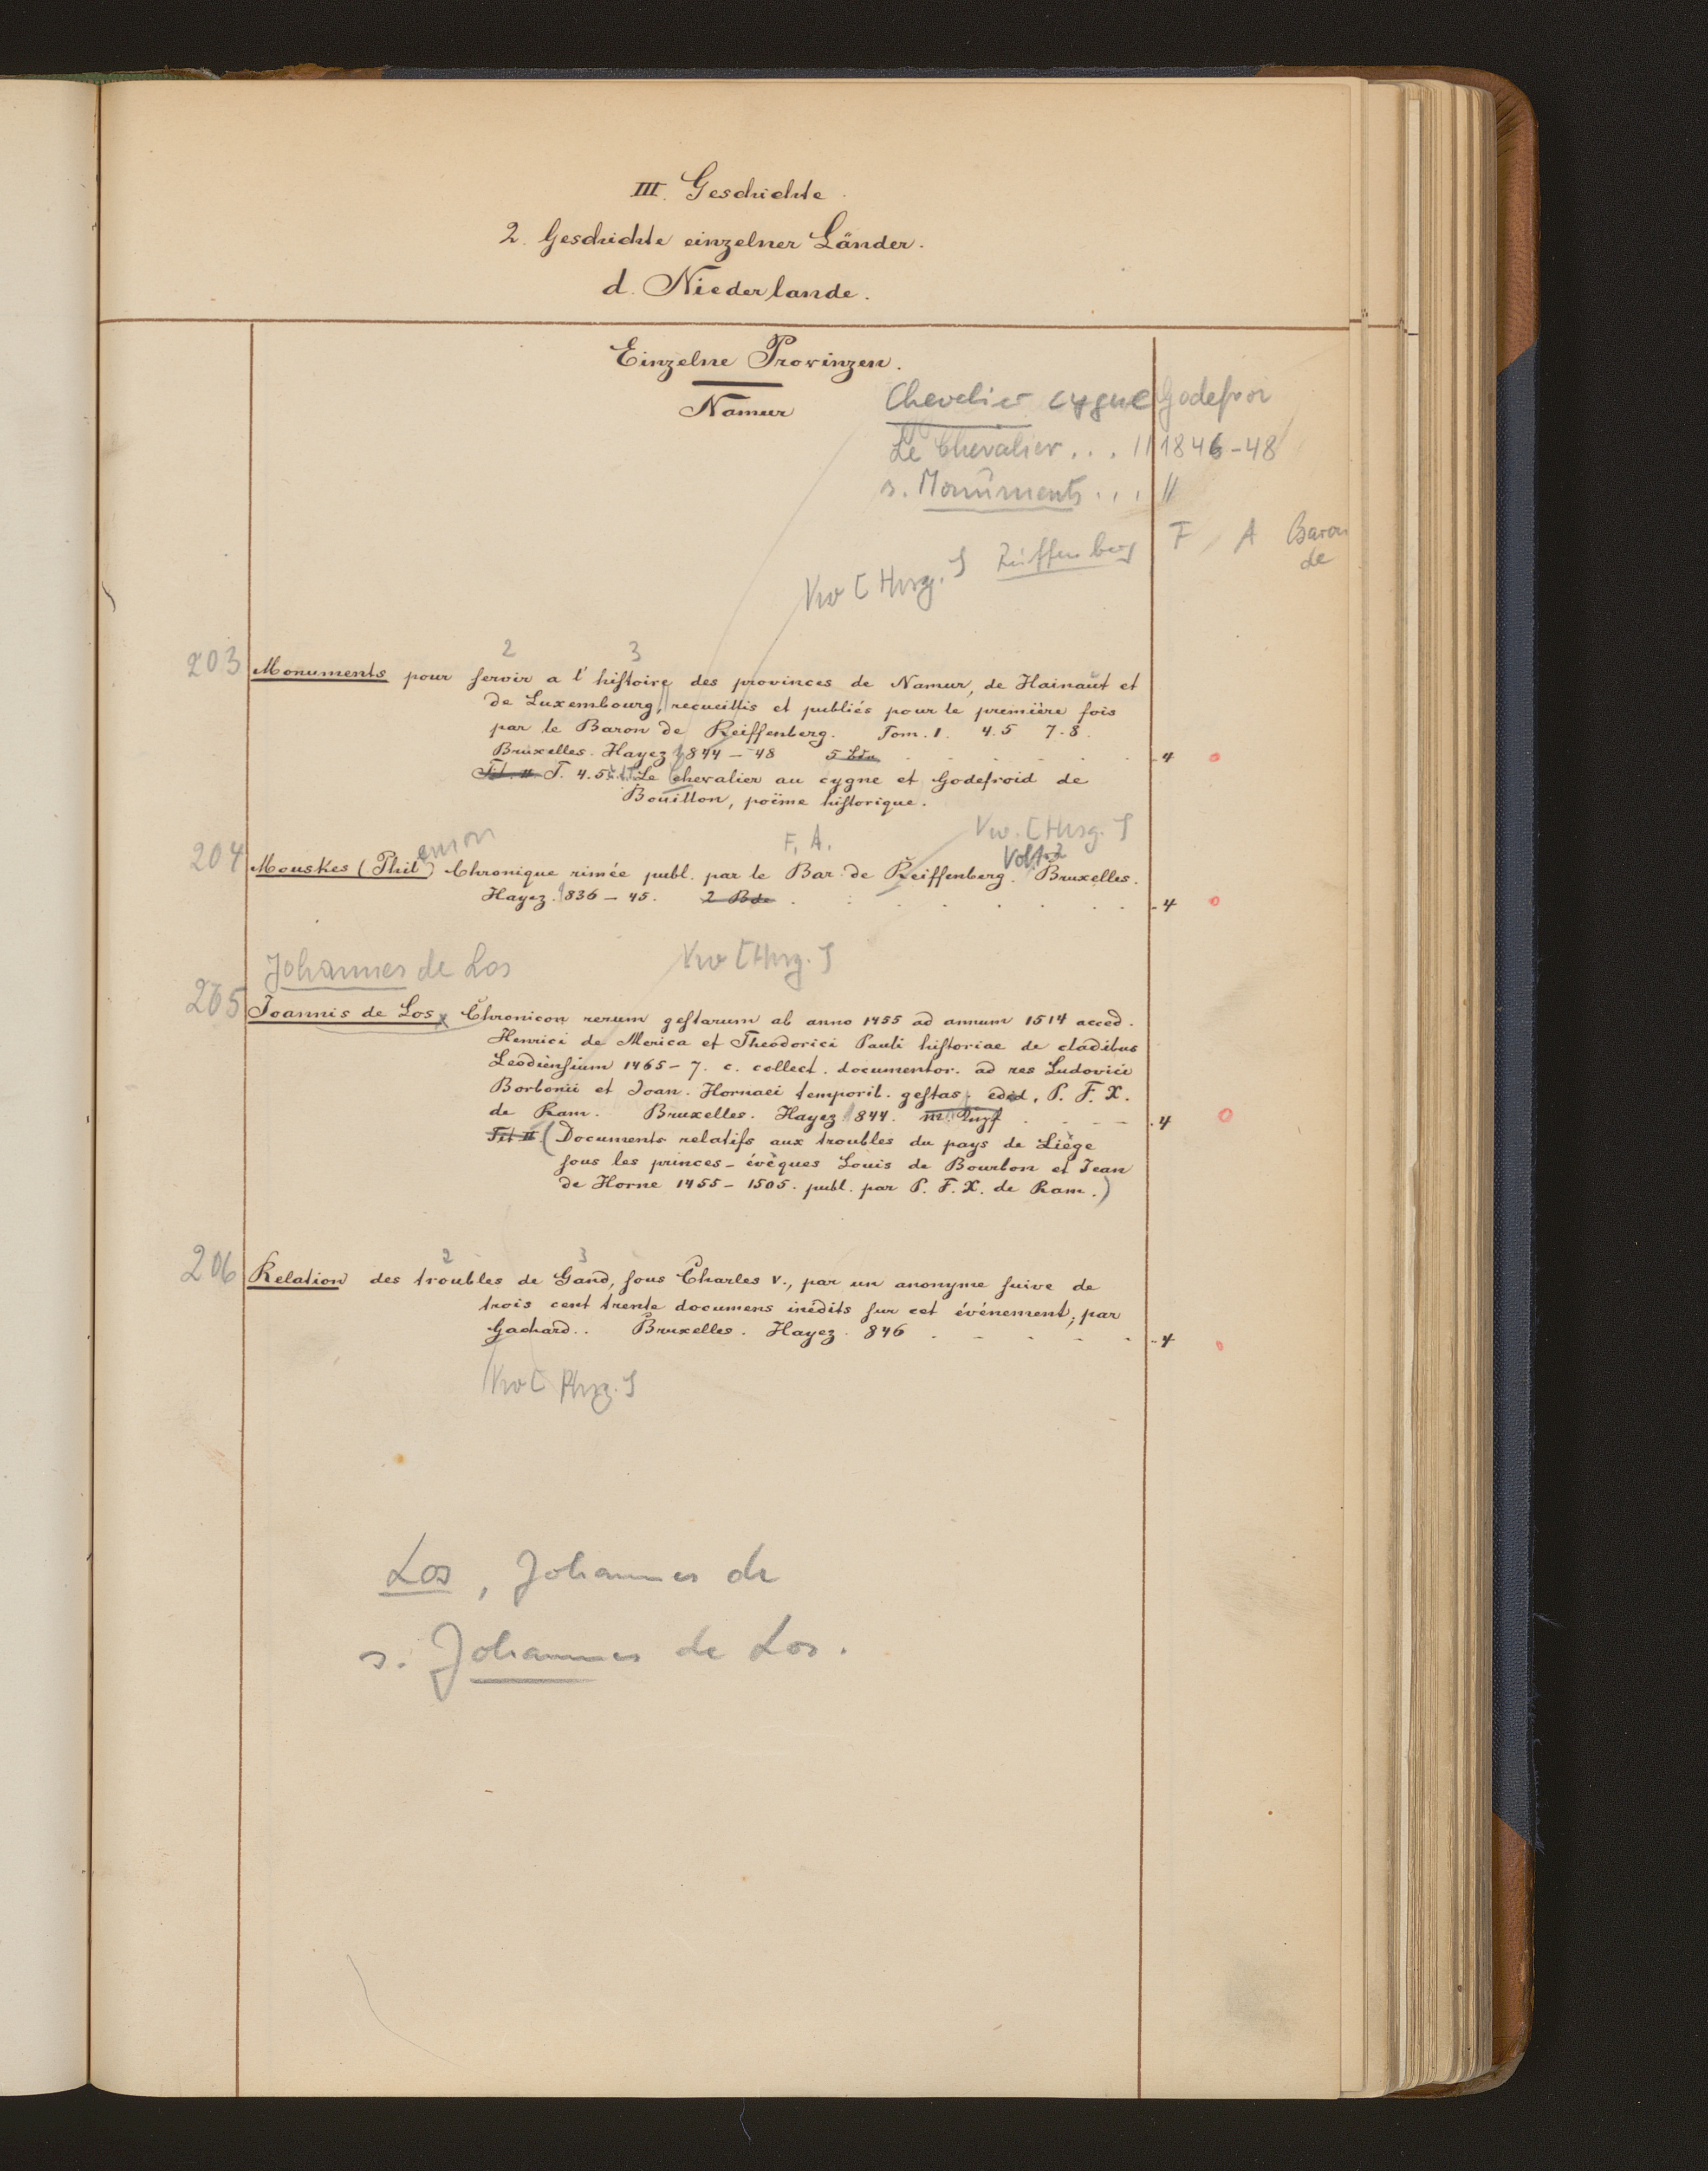 III. Geschichte.
2. Geschichte einzelner Länder.
d. Niederlande.
Einzelne Provinzen.
Namur
Chevelier cygne Godefroi
Le Chevalier... // 1846-48
s. Monuments... //
Vw [Hrsg.] Reiffenberg F A Baron
de
2 3
203 Monuments pour servir a l'histoire des provinces de Namur, de Hainaut et
de Luxembourg, recueillis et publiés pour le première fois
par le Baron de Reiffenberg. Tom. 1. 4.5 7.8.
Bruxelles. Hayez 1844-48 5 Bde. 4 o
Tit. II T. 4.5: Le chevalier au cygne et Godefroid de
Bouillon, poïme historique.
emon F. A. Vw. [Hrsg.]
Vol 1.2
204 Mouskes (Phil) Chronique rimée publ. par le Bar. de Reiffenberg. Bruxelles.
Hayez. 1836-45. 2 Bde. 4 o
Johannes de Los Vw [Hrsg.]
205 Joannis de Los, Chronicon rerum gestarum ab anno 1455 ad annum 1514 acced.
Henrici de Merica et Theodorici Pauli historiae de cladibus
Leodiensium 1465-7. c. collect. documentor. ad res Ludovici
Borbonii et Joan. Hornaei temporib. gestas, edid. P. F. X.
de Ram. Bruxelles. Hayez 1844. 4 o
Tit II (Documents relatifs aux troubles du pays de Liège
sous les princes-évêques Louis de Bourbon et Jean
de Horne 1455-1505. publ. par P. F. X. de Ram.)
2 3
206 Relation des troubles de Gand, sous Charles V., par un anonyme suive de
trois cent trente documens inédits sur cet événement; par
Gachard.. Bruxelles. Hayez. 846 4
Vw [Hrsg.]
Los, Johannes de
s. Johannes de Los.